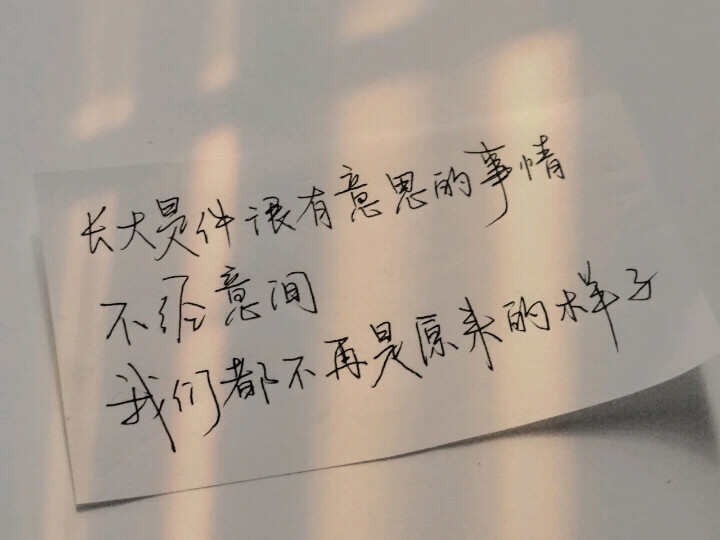 长大是件很有意思的事情
不经意间
我们都不再是原来的样子